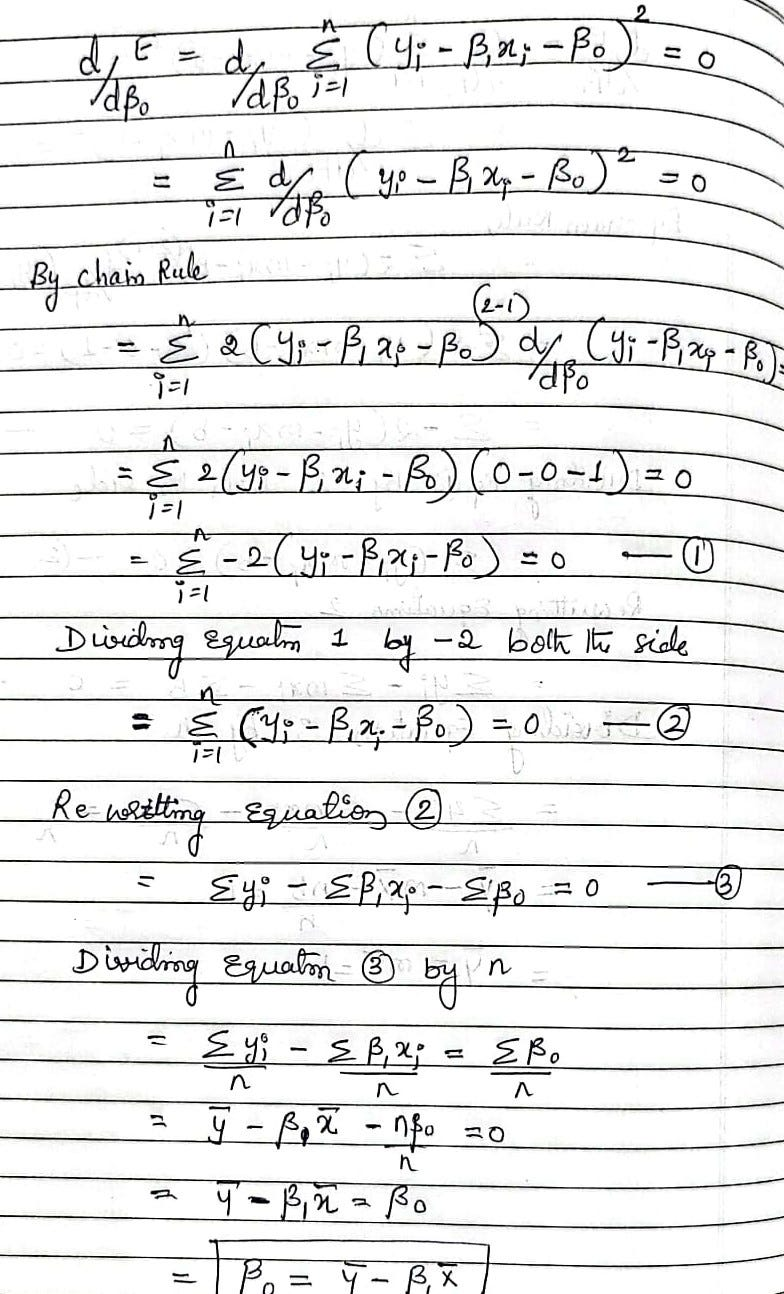 d/dβ₀ E = d/dβ₀ Σᵢ₌₁ⁿ (yᵢ - β₁xᵢ - β₀)² = 0
= Σᵢ₌₁ⁿ d/dβ₀ (yᵢ - β₁xᵢ - β₀)² = 0
By chain Rule
= Σᵢ₌₁ⁿ 2(yᵢ - β₁xᵢ - β₀)⁽²⁻¹⁾ d/dβ₀ (yᵢ - β₁xᵢ - β₀) =
= Σᵢ₌₁ⁿ 2(yᵢ - β₁xᵢ - β₀)(0-0-1) = 0
= Σᵢ₌₁ⁿ -2(yᵢ - β₁xᵢ - β₀) = 0 — ①
Dividing Equatn 1 by -2 both the side
= Σᵢ₌₁ⁿ (yᵢ - β₁xᵢ - β₀) = 0 — ②
Re-writting Equation ②
= Σyᵢ - Σβ₁xᵢ - Σβ₀ = 0 — ③
Dividing Equatn ③ by n
= Σyᵢ/n - Σβ₁xᵢ/n = Σβ₀/n
= ȳ - β₁x̄ - nβ₀/n = 0
= ȳ - β₁x̄ = β₀
= β₀ = ȳ - β₁x̄